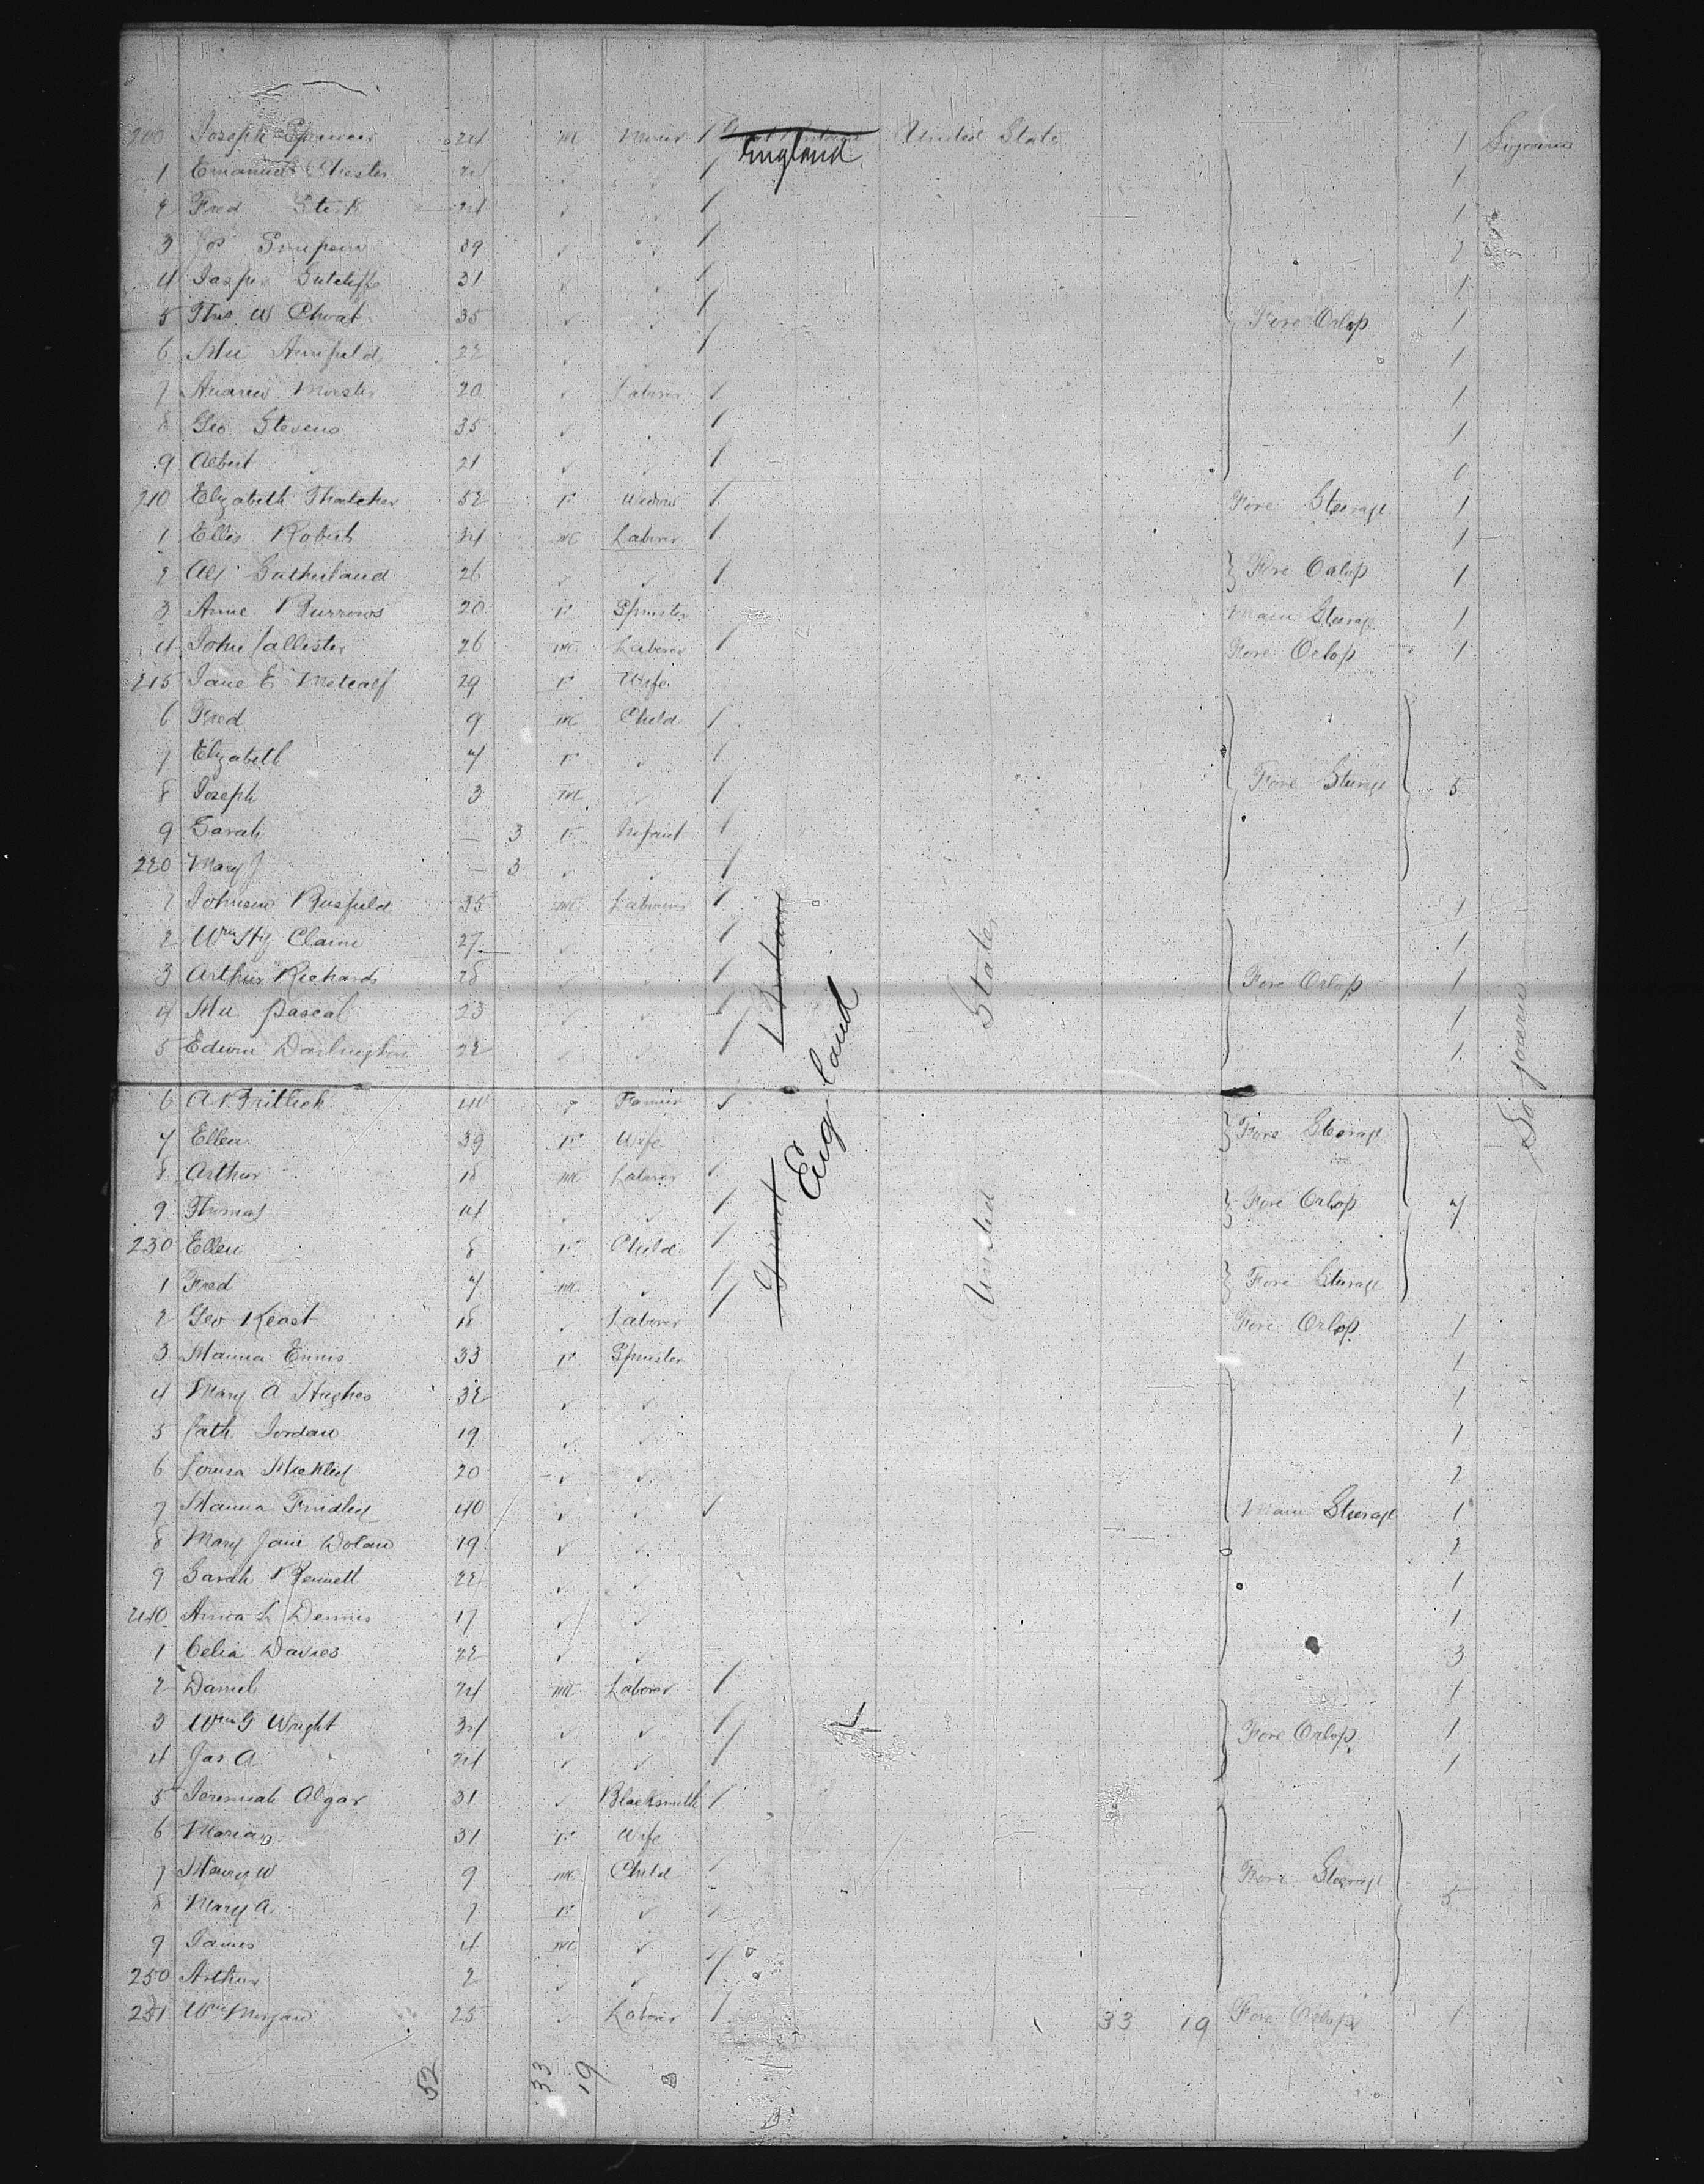 200 Joseph Spencer 24 m Miner 1 England United States 1 Sojourn
1 Emanuel Chester 24 ✓ ✓ 1 1
2 Fred 24 ✓ ✓ 1 1
3 Jos Simpson 39 ✓ ✓ 1
4 Jasper Sutcliffe 31 ✓ ✓ 1 1
5 Thos W Choat 35 ✓ ✓ 1 Fore Orlop 1
6 22 ✓ ✓ 1 1
7 Andrew 20 ✓ Laborer 1 1
8 Geo Stevens 35 ✓ ✓ 1 1
9 Albert ✓ 21 ✓ ✓ 1
210 Elizabeth Thatcher 52 F Widow 1 Fore Steerage 1
1 Ellis Roberts 34 m Laborer 1 1
2 Alf Sutherland 26 ✓ ✓ 1 Fore Orlop 1
3 Anne Burrows 20 F Spinster Main Steerage 1
4 John Callister 26 m Laborer 1 Fore Orlop 1
215 Jane E Metcalf 29 F Wife
6 Fred 9 m Child 1
7 Elizabeth 7 F ✓ 1
8 Joseph 3 m ✓ 1 Fore Steerage 5
9 Sarah — 3 F Infant 1
220 Mary J — 3 ✓ ✓ 1
1 Johnson Busfield 35 m Laborer 1 1
2 Wm Hy Claim 27 ✓ ✓ 1 1
3 Arthur Richards 28 ✓ ✓ 1 Fore Orlop 1
4 Pascal 23 ✓ ✓ 1 1
5 Edwin Darlington 22 ✓ ✓ 1 1
Great Britain
England
United States
Sojourn
6 A 40 Farmer 1
7 Ellen 39 F Wife Fore Steerage
8 Arthur 18 m Laborer 1
9 Thomas 14 ✓ ✓ 1 Fore Orlop 7
230 Ellen 8 F Child 1
1 Fred 7 m ✓ 1 Fore Steerage
2 Geo Keast 18 ✓ Laborer 1 Fore Orlop 1
3 Hanna Ennis 33 F Spinster 1
4 Mary A Hughes 32 ✓ ✓ 1
5 Cath Jordan 19 ✓ ✓ 1
6 Louisa 20 ✓ ✓ 2
7 Hanna 40 ✓ ✓ 1 Main Steerage 1
8 Mary Jane Dolan 19 ✓ ✓ 2
9 Sarah Bennett 22 ✓ ✓ 1
240 Anna L Dennis 17 ✓ ✓ 1
1 Celia Davies 22 ✓ ✓ 3
2 Daniel 24 m Laborer 1 1
3 Wm G Wright 34 ✓ ✓ 1 Fore Orlop 1
4 Jas A " 24 ✓ ✓ 1 1
5 Jeremiah Algar 31 ✓ Blacksmith 1
6 Maria 31 F Wife
7 Henry W 9 m Child 1 Fore Steerage
8 Mary A 7 F ✓ 5
9 James 4 m ✓ 1
250 Arthur 2 ✓ ✓ 1
251 Wm Morgan 25 ✓ Laborer 1 33 19 Fore Orlop 1
52 33 19